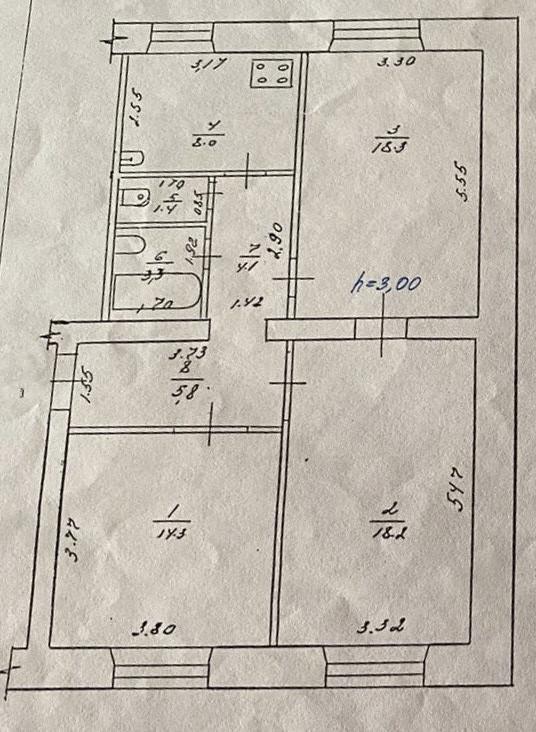 3,17
3.30
2.55
4
8.0
3
18.3
5.55
1.70
5
1.4
0.85
2.90
6
3,3
1.92
7
4.1
1.70
1.42
h=3,00
3.73
8
5,8
1.55
1
14.3
2
18.2
5.47
3.77
3.80
3.32